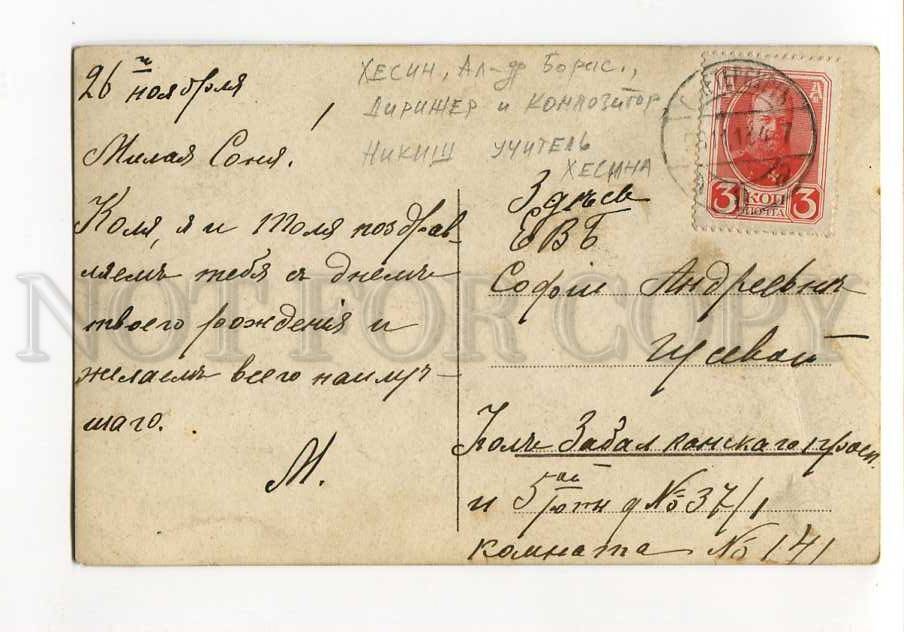 26 го ноября
Милая Соня!
Коля, я и Толя поздрав-
ляемъ тебя съ днемъ
твоего рожденія и
желаемъ всего наилуч-
шаго.
М.
ХЕСИН, Ал-др Борис.,
Дирижер и композитор
НИКИШ УЧИТЕЛЬ
ХЕСИНА
3 КОП 3
ПОЧТА
Здѣсь
ЕВБ
Софіи Андреевнѣ
Гусевой
Забалканскаго просп.
и 5 ой роты д № 37/1
комната № 141
NOT FOR COPY